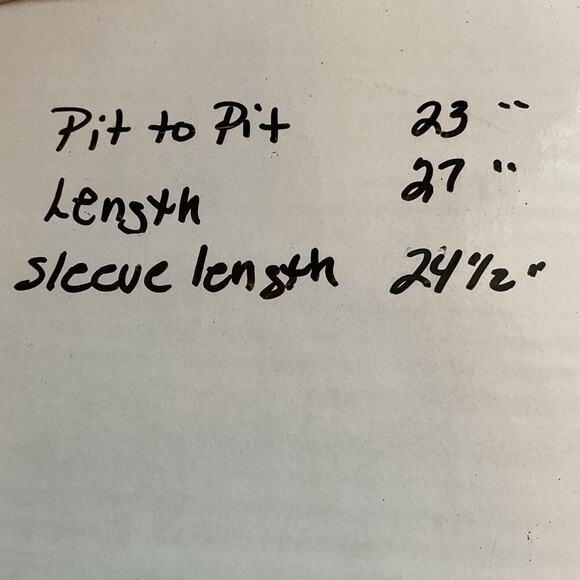 Pit to Pit 23"
Length 27"
Sleeve length 24 1/2"